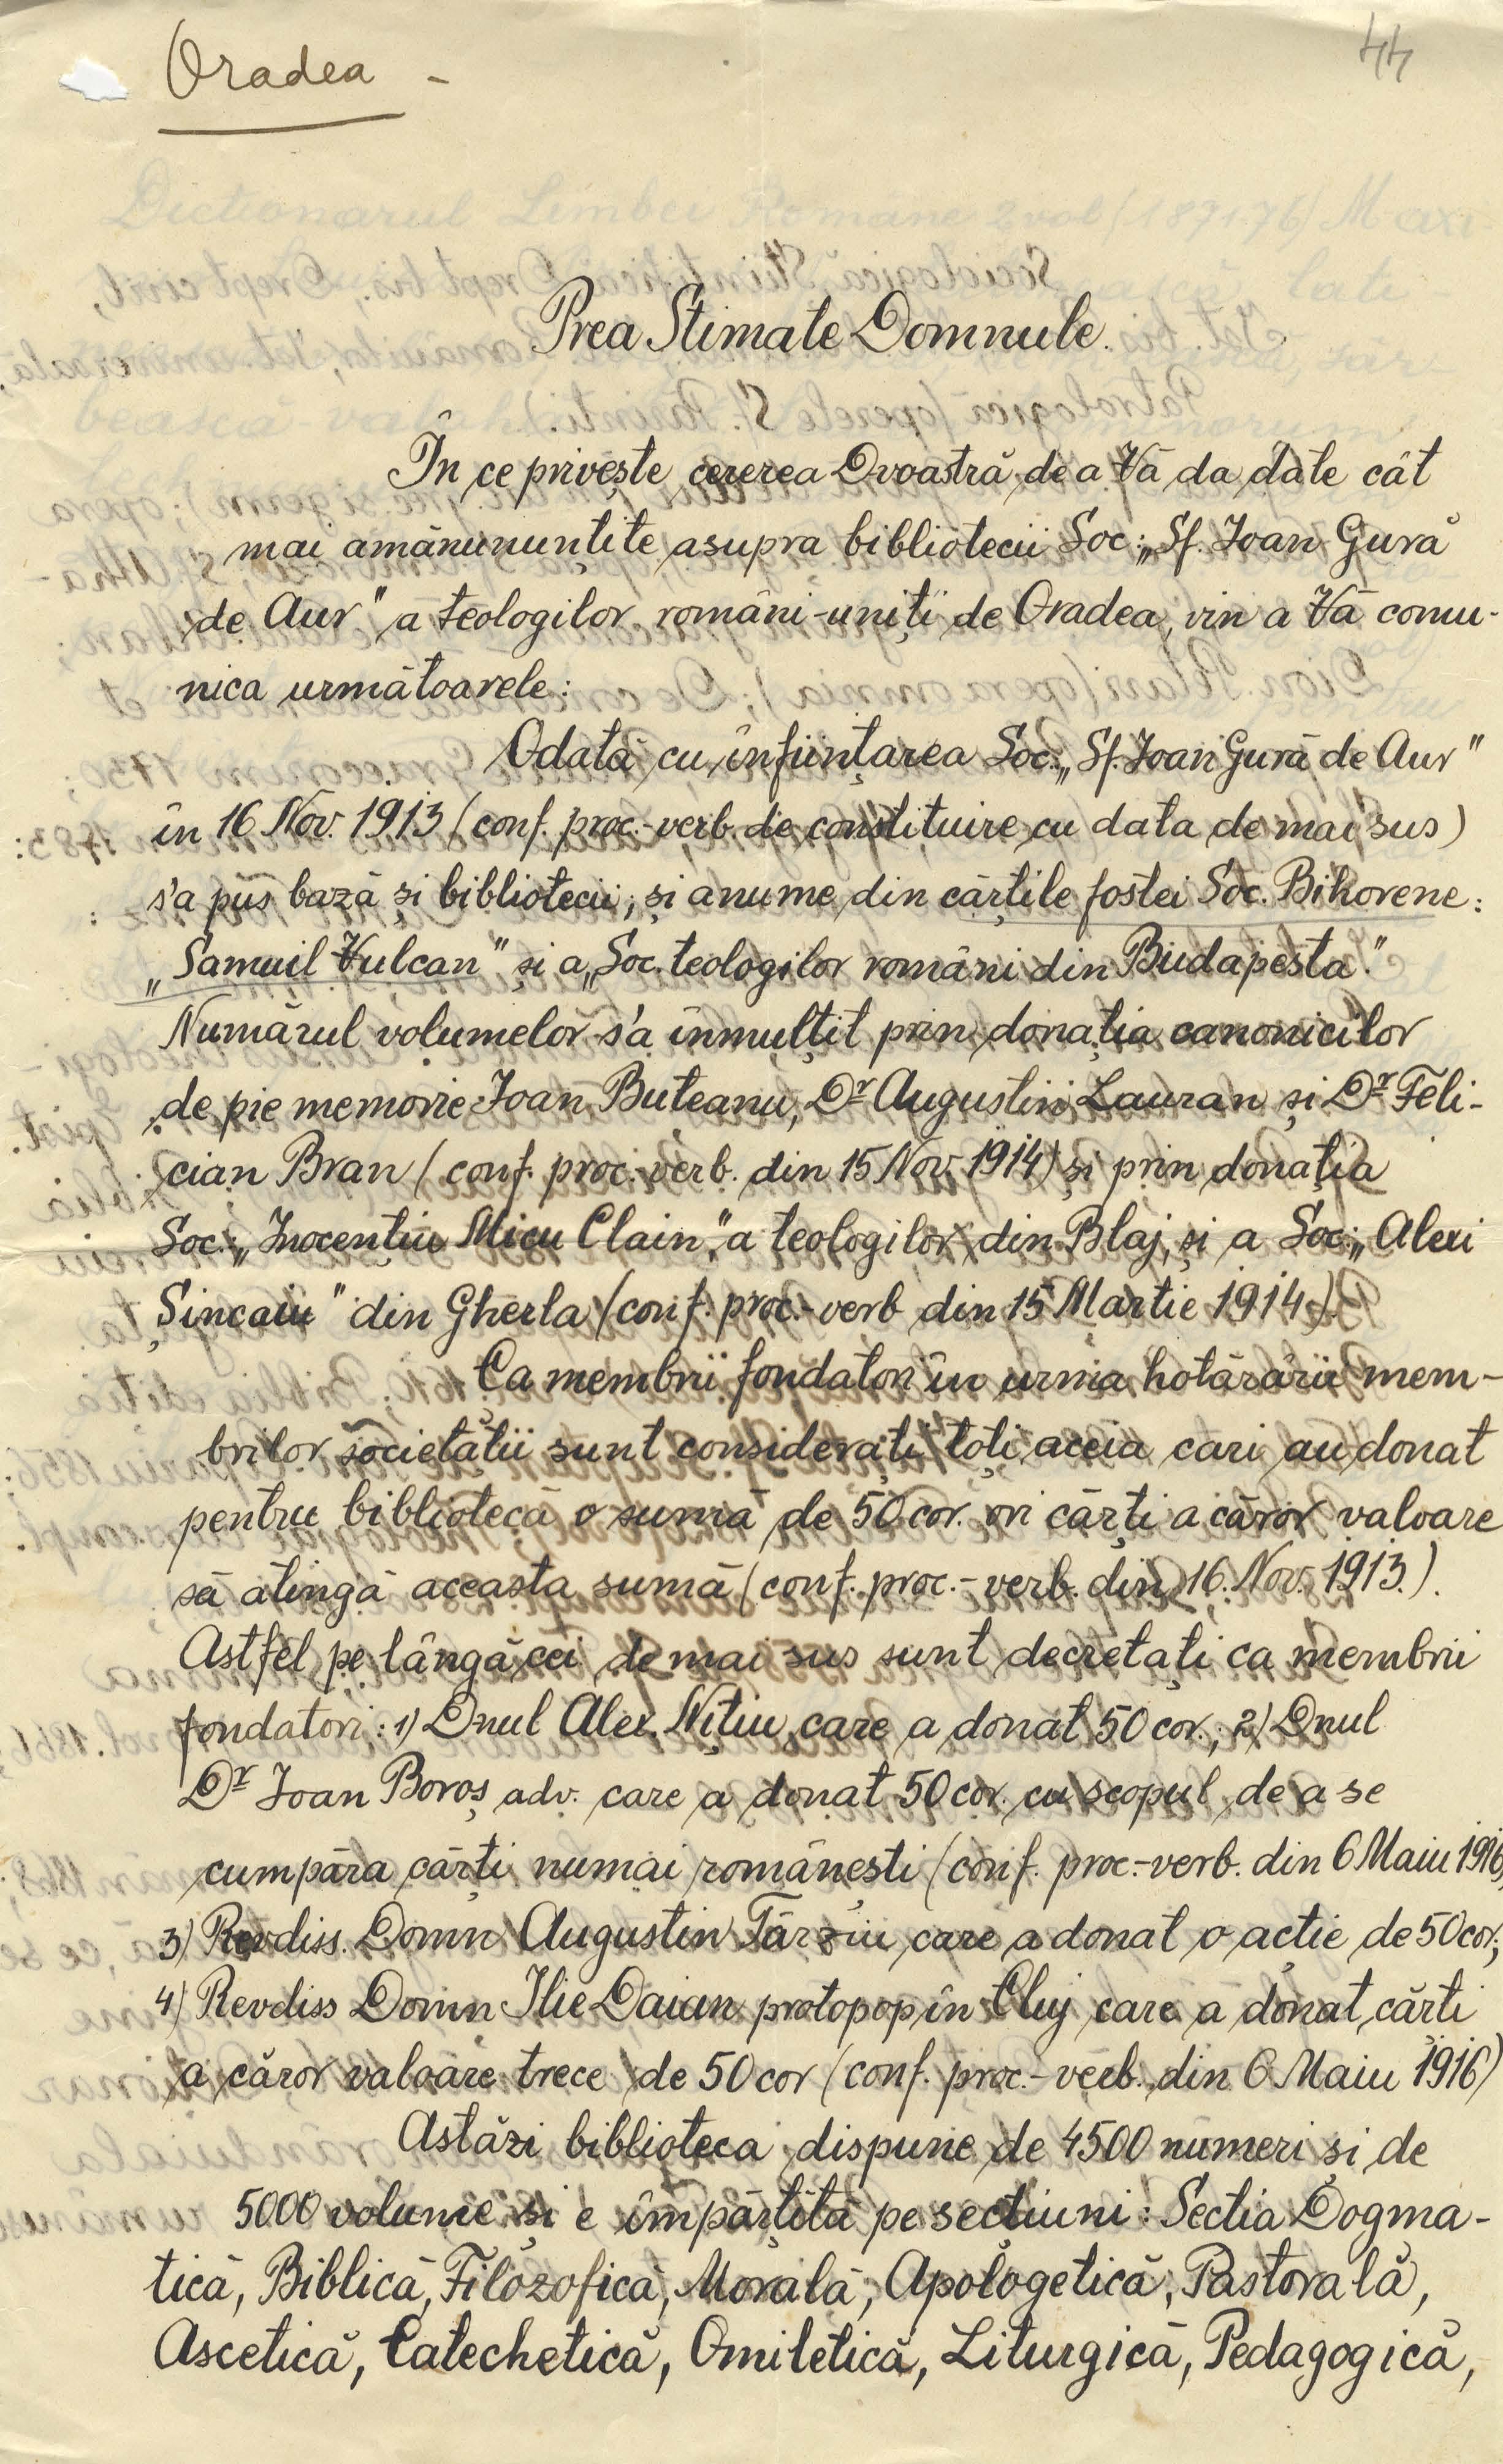 Oradea -
44
Prea Stimate Domnule.
În ce privește cererea Dvoastră de a Vă da date cât
mai amănununțite asupra bibliotecii Soc: „Sf. Ioan Gură
de Aur" a teologilor români-uniți de Oradea, vin a Vă comu-
nica următoarele:
Odată cu înființarea Soc: „Sf. Ioan Gură de Aur"
în 16 Nov. 1913 (conf. proc.-verb. de constituire cu data de mai sus)
s'a pus bază și bibliotecii, și anume din cărțile fostei Soc. Bihorene:
„Samuil Vulcan" și a „Soc. teologilor români din Budapesta."
Numărul volumelor s'a înmulțit prin donația canonicilor
de pie memorie Ioan Buteanu, Dr Augustin Lauran și Dr Feli-
cian Bran (conf. proc.-verb. din 15 Nov. 1914) și prin donația
Soc: „Inocențiu Micu Clain", a teologilor din Blaj, și a Soc: „Alexi
Șincaiu" din Gherla (conf. proc.-verb din 15 Martie 1914).
Ca membrii fondatori în urma hotărârii mem-
brilor societății sunt considerați toți aceia cari au donat
pentru bibliotecă o sumă de 50 cor. ori cărți a căror valoare
să atingă aceasta sumă (conf. proc.-verb. din 16. Nov. 1913.).
Astfel pe lângă cei de mai sus sunt decretați ca membrii
fondatori: 1) Dnul Alex. Nițiu, care a donat 50 cor.; 2) Dnul
Dr Ioan Boroș adv. care a donat 50 cor. cu scopul de a se
cumpăra cărți numai românești (conf. proc.-verb. din 6 Maiu 1916,
3) Revdiss. Domn Augustin Târziu care a donat o acție de 50 cor;
4) Revdiss Domn Ilie Daian protopop în Cluj care a donat cărti
a căror valoare trece de 50 cor (conf. proc.-verb. din 6 Maiu 1916)
Astăzi biblioteca dispune de 4500 numeri și de
5000 volume și e împărțită pe secțiuni: Secția Dogma-
tică, Biblică, Filozofică, Morală, Apologetică, Pastorală,
Ascetică, Catechetică, Omiletică, Liturgică, Pedagogică,